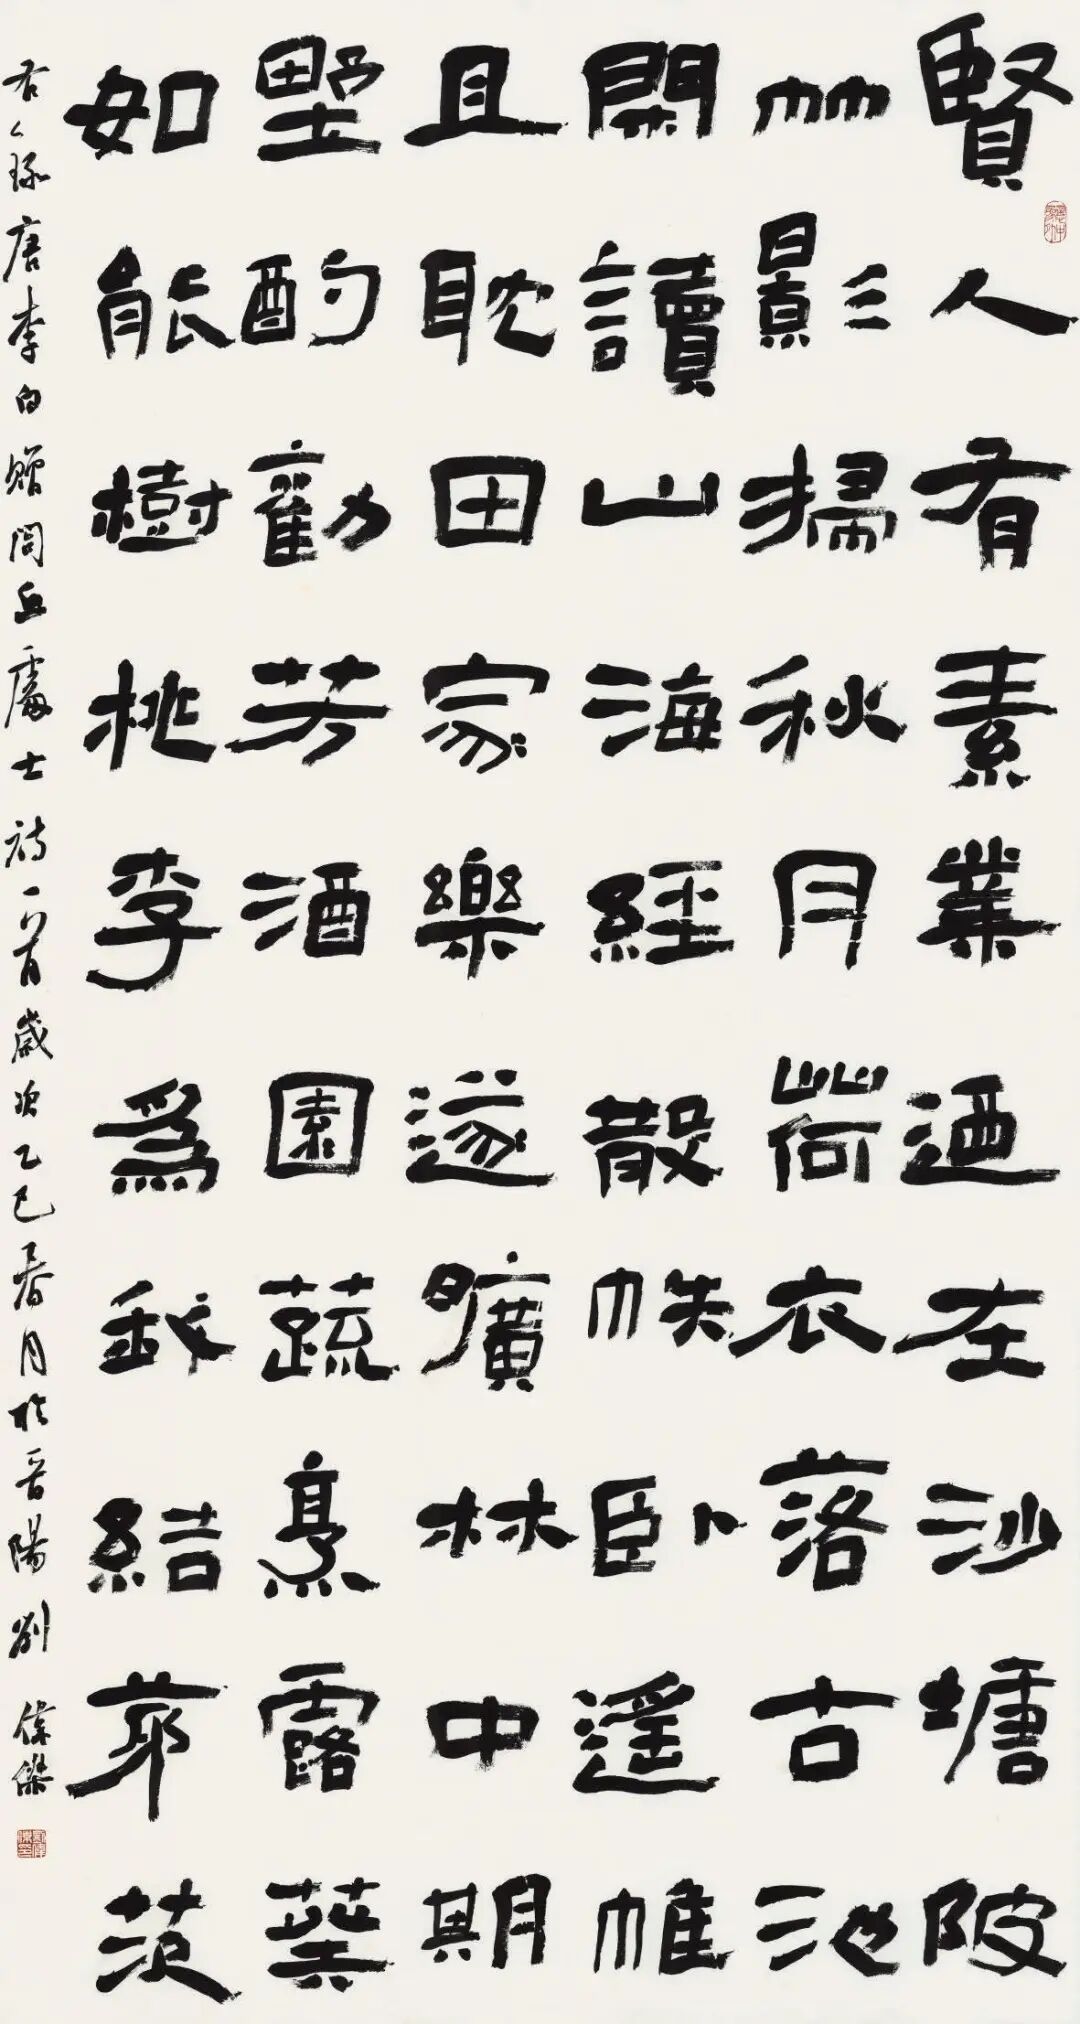 賢人有素業迺在沙塘陂
竹影掃秋月荷衣落古池
閑讀山海經散帙臥遙帷
且耽田家樂遂曠林中期
野酌勸芳酒園蔬烹露葵
如能樹桃李為我結茅茨
右錄唐李白贈閭丘處士詩一首歲次乙巳春月於晉陽劉偉傑